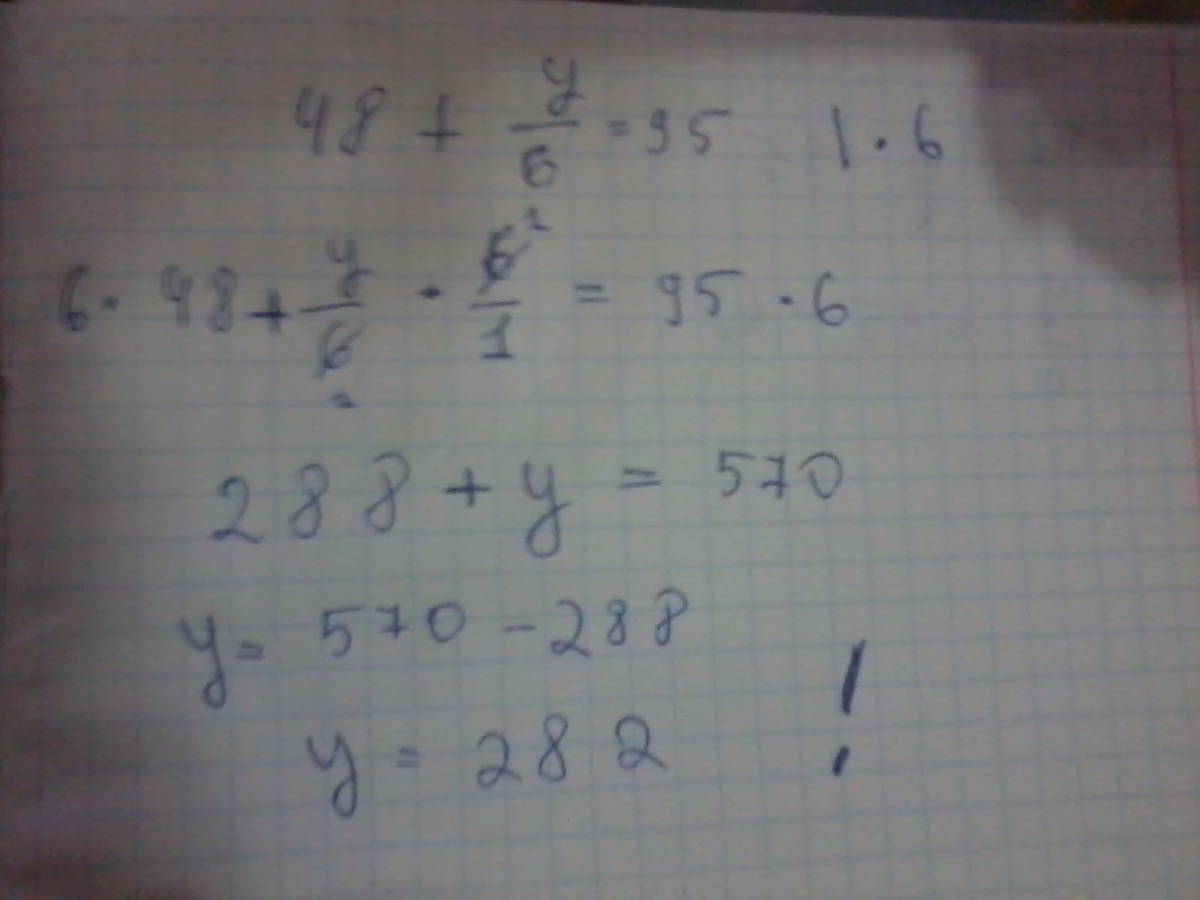 48 + y/6 = 95 | · 6
6 · 48 + y/6 · 6¹/1 = 95 · 6
288 + y = 570
y = 570 - 288
y = 282 !